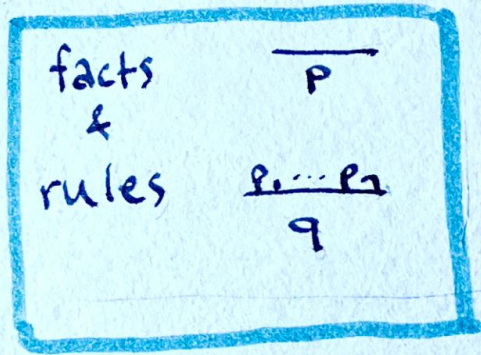 facts
&
rules
p
p₁ ... pₙ
q